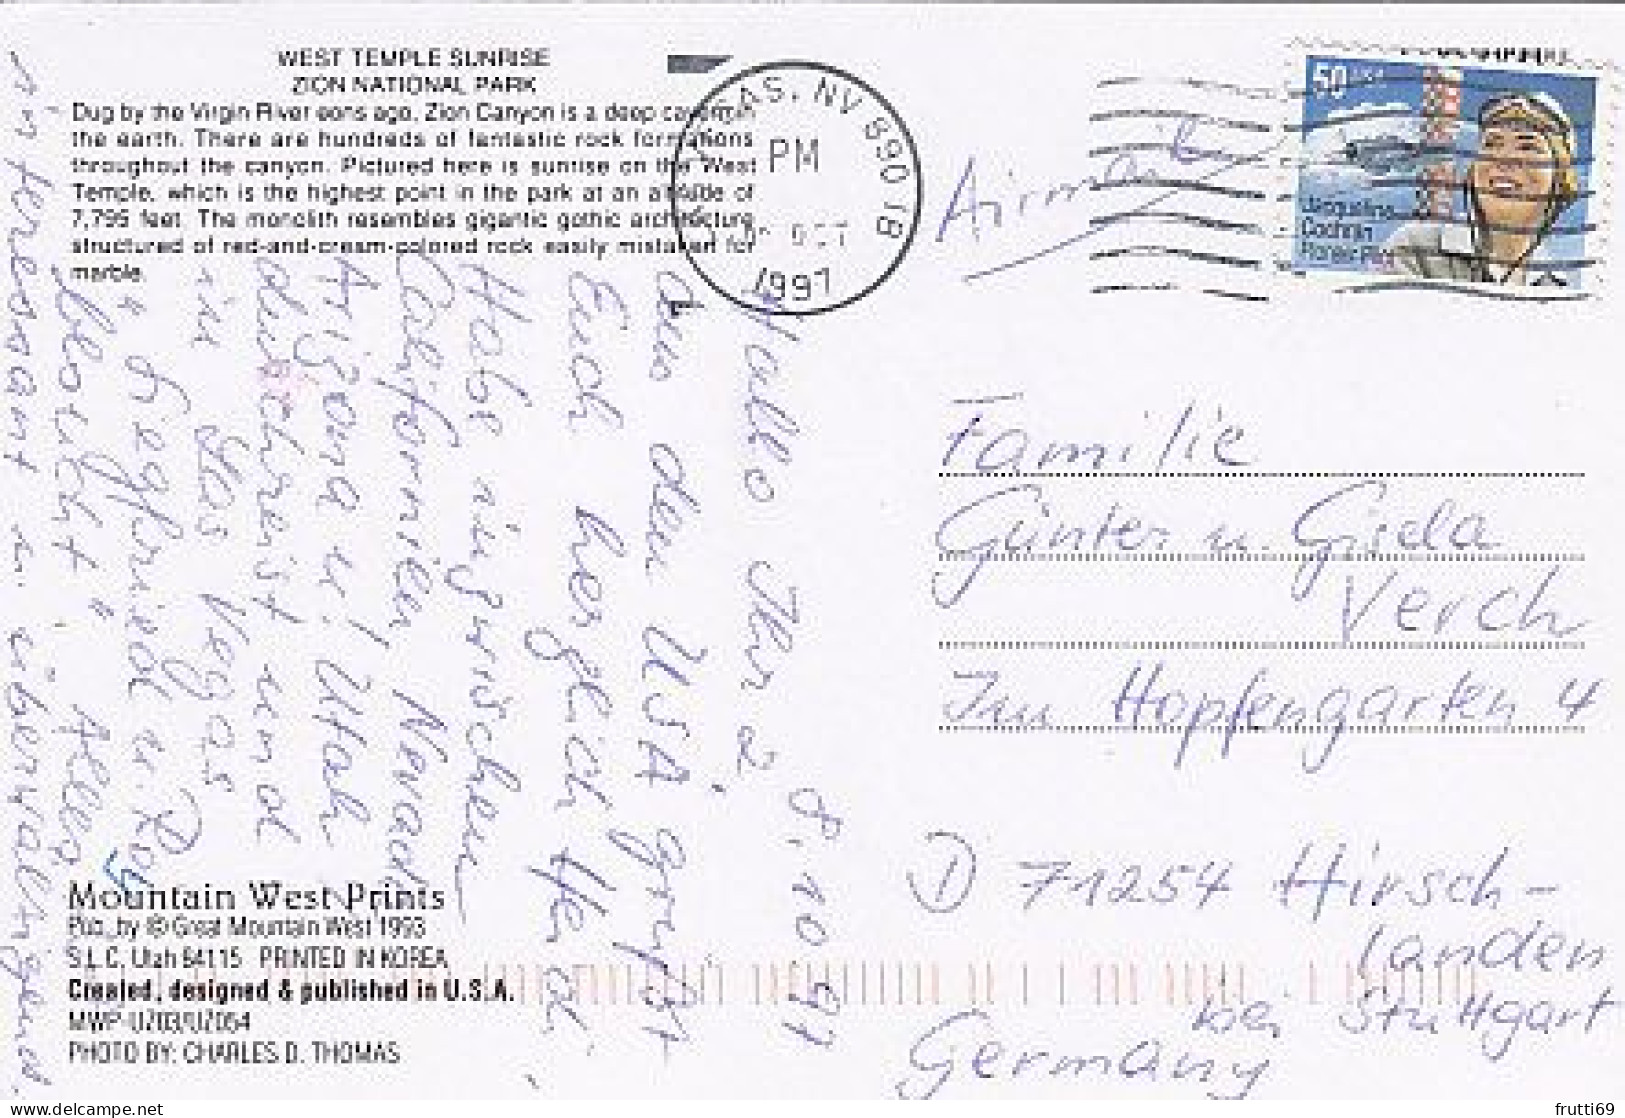 WEST TEMPLE SUNRISE
ZION NATIONAL PARK
Dug by the Virgin River eons ago, Zion Canyon is a deep cavern in
the earth. There are hundreds of fantastic rock formations
throughout the canyon. Pictured here is sunrise on the West
Temple, which is the highest point in the park at an altitude of
7,795 feet. The monolith resembles gigantic gothic architecture
structured of red-and-cream-colored rock easily mistaken for
marble.
AS, NV 89018
PM
OCT
1997
Airmail
50
Jacqueline
Cochran
Pioneer Pilot
8.10.97
Hallo Ihr 2,
aus den USA grüßt
Euch herzlich Heidi.
Habe inzwischen
Californien, Nevada
Arizona u. Utah
durchreist und
in Las Vegas
"Siegfried u. Roy
besucht". Alles
interessant u. überwältigend.
Familie
Günter u. Gisela
Verch
Im Hopfengarten 4
D 71254 Hirsch-
landen
bei Stuttgart
Germany
Mountain West Prints
Pub. by © Great Mountain West 1993
S.L.C. Utah 84115 PRINTED IN KOREA
Created, designed & published in U.S.A.
MWP-UZ03/UZ054
PHOTO BY: CHARLES D. THOMAS
www.delcampe.net
frutti69